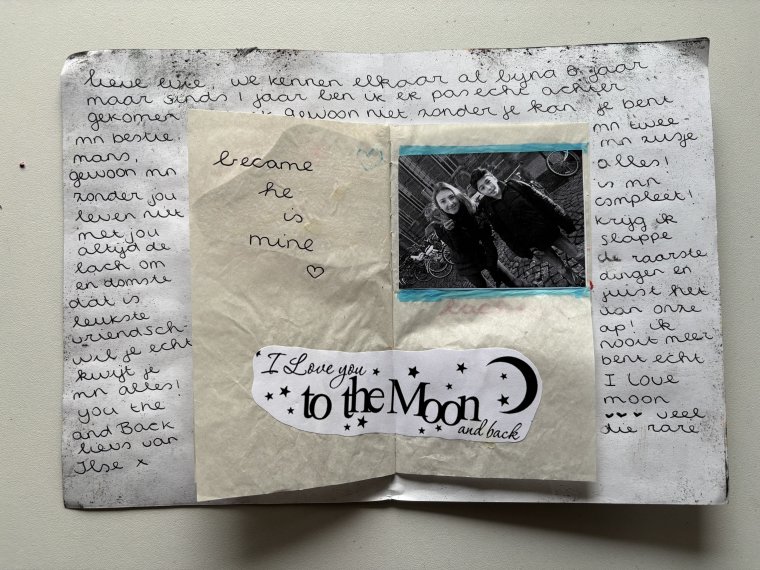 lieve evie, we kennen elkaar al bijna 6 jaar
maar sinds 1 jaar ben ik er pas echt achter
gekomen ik gewoon niet zonder je kan, je bent
mn bestie, mn twee-
mans, mn zusje
gewoon mn alles!
zonder jou is mn
leven niet compleet!
met jou krijg ik
altijd de slappe
lach om de raarste
en domste dingen en
dat is juist het
leukste van onze
vriendsch- ap! ik
wil je echt nooit meer
kwijt je bent echt
mn alles! I love
you the moon
and Back ♥♥♥ veel
liefs van die rare
Ilse x
became
he
is
mine
♡
I Love you
to the Moon
and back